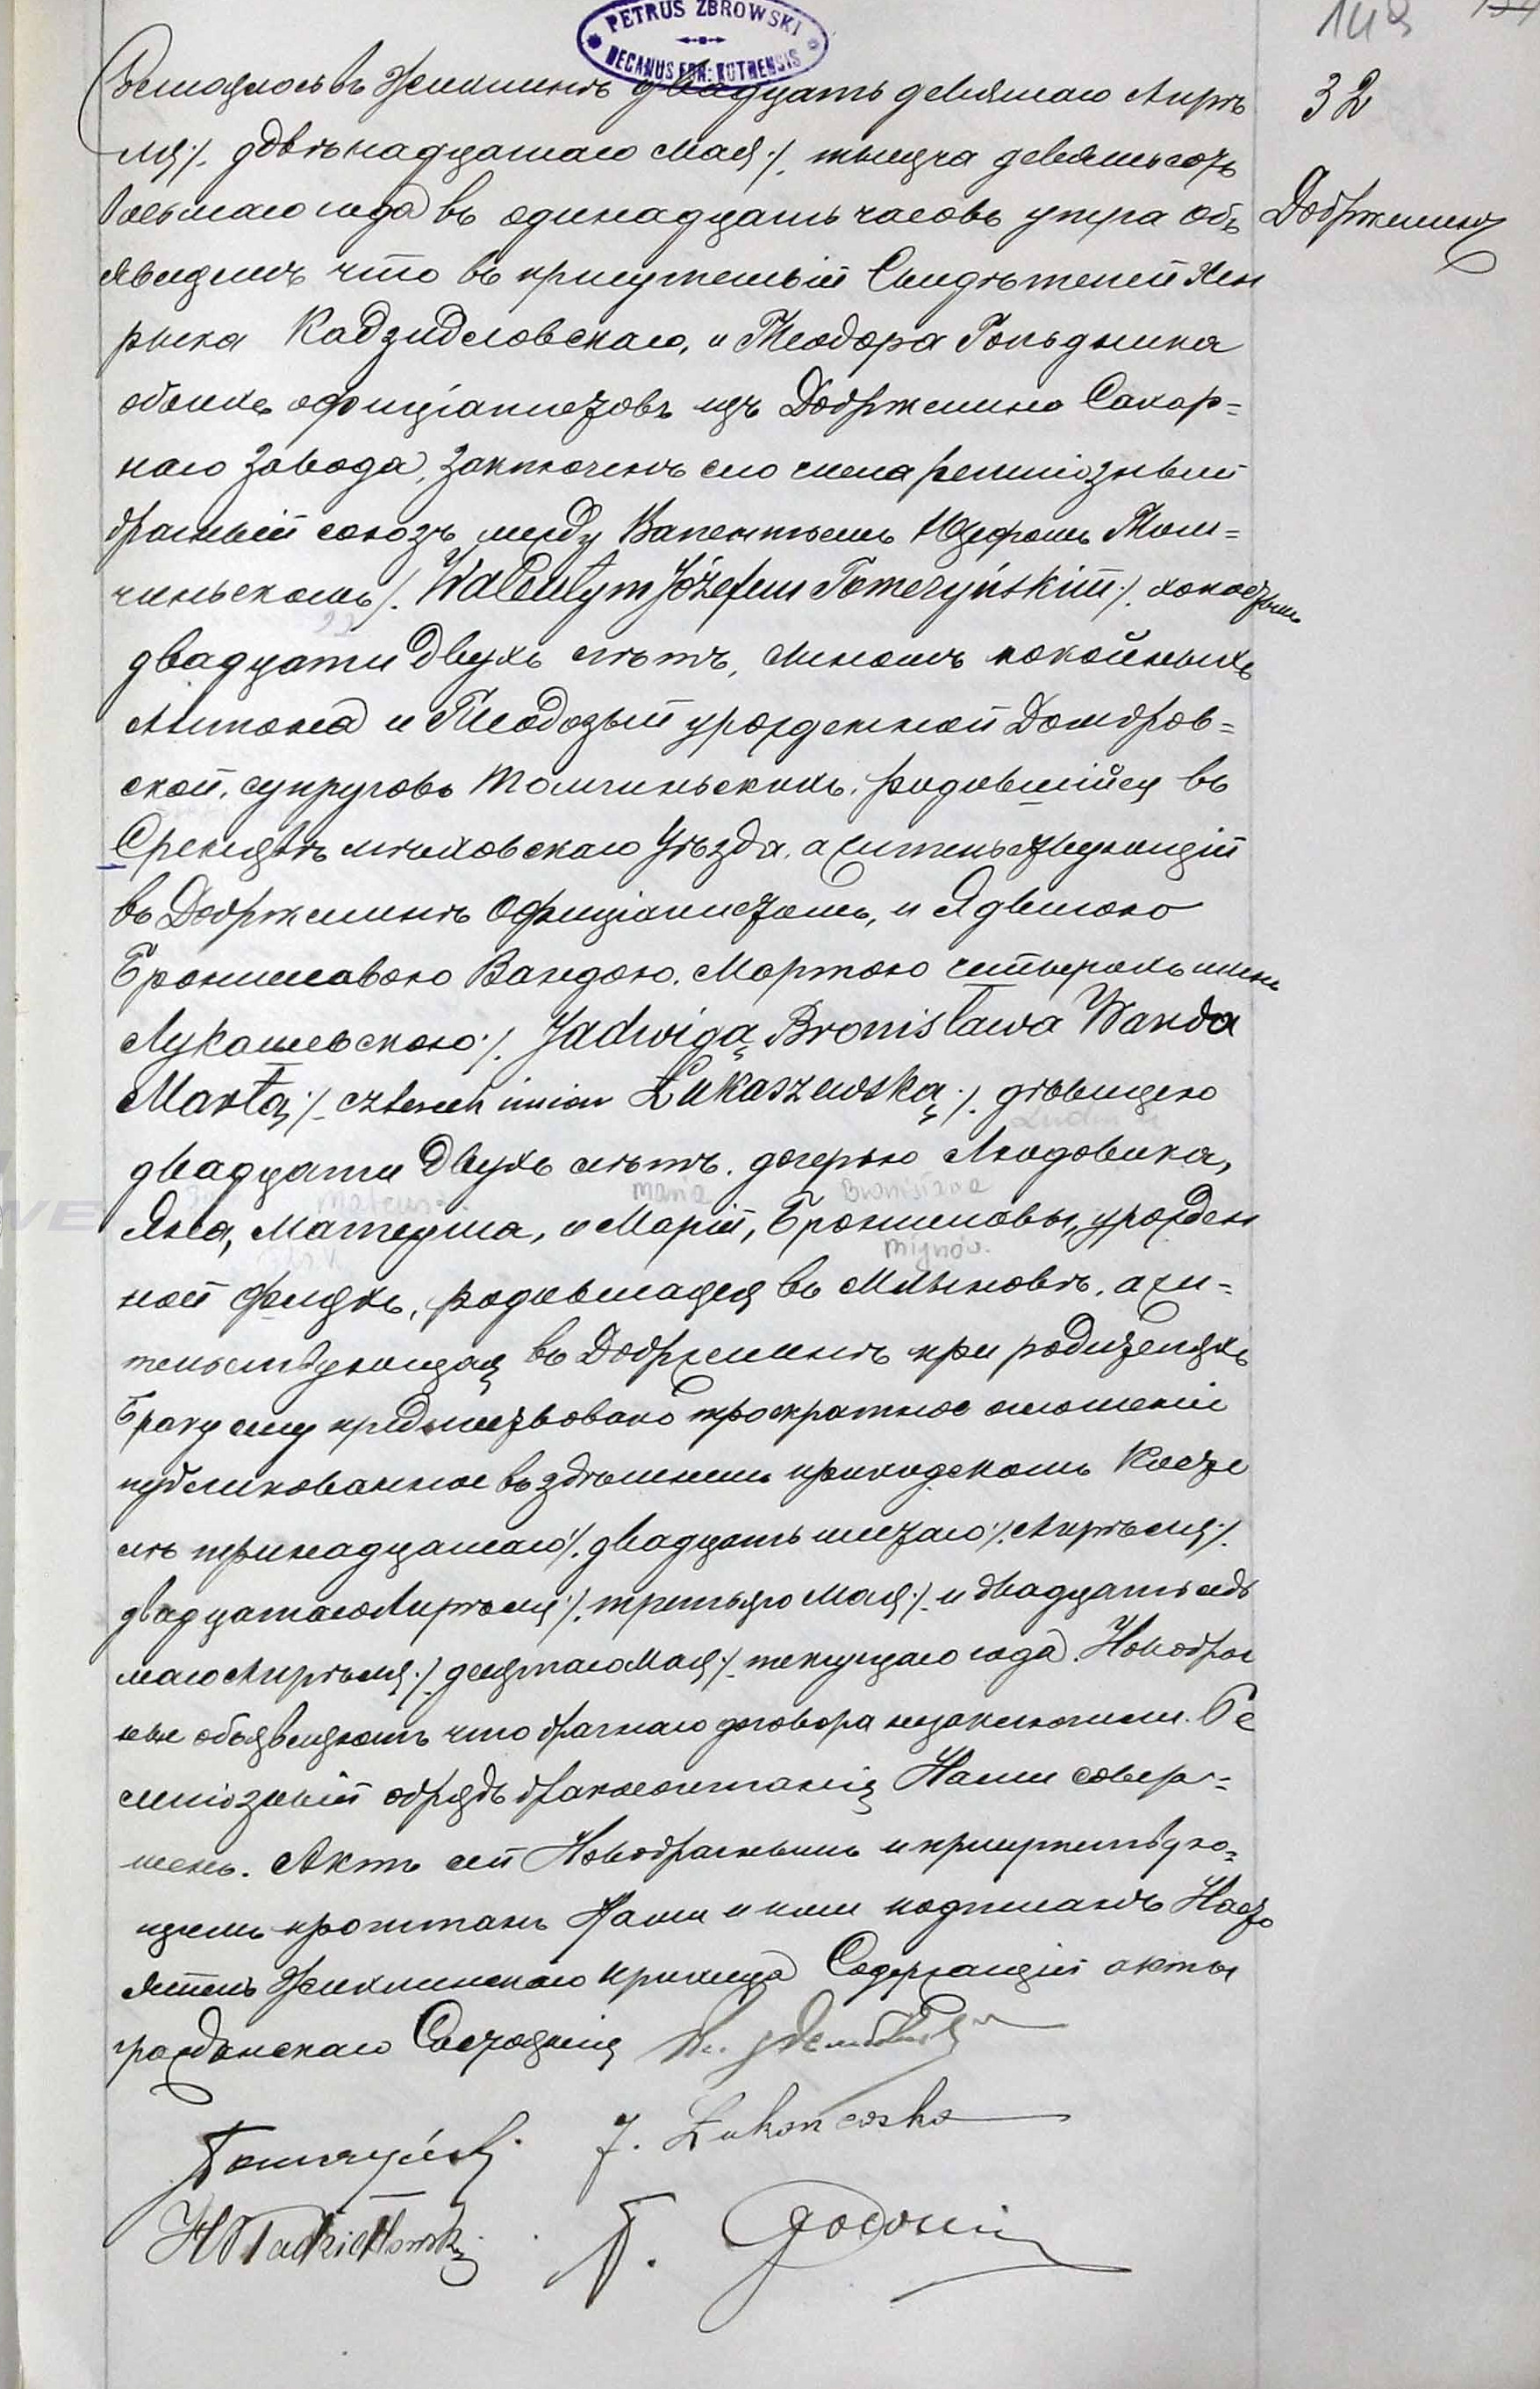 PETRUS ZBROWSKI
DECANUS FOR: KUTNENSIS
148
32
Добржелинъ
Состоялось въ Жихлинѣ двадцать девятаго Апрѣ
ля /. двѣнадцатаго Мая /. тысяча девятьсотъ
восьмаго года въ одинадцать часовъ утра Объ
являемъ что въ присутствіи Свидѣтелей Хен
рыка Кадзидловскаго, и Теодора Гольдника
обоихъ оффиціалистовъ изъ Добржелина Сахар=
наго Завода, заключенъ сего числа религіозный
брачный союзъ между Валентымъ Юзефомъ Том=
чиньскимъ /. Walentym Józefem Tomczyńskim /. холостымъ
двадцати двухъ лѣтъ, сыномъ покойныхъ
Антона и Теодозыи урожденной Домбров=
ской, супруговъ Томчиньскихъ, родившійся въ
мѣховскаго Уѣзда, а жительствующій
въ Добржелинѣ Оффиціалистомъ, и Ядвигою
Брониславою Вандою, Мартою четырехъ именъ
Лукашевскою /. Jadwigą Bronisława Wanda
Martą /. czterech imion Łukaszewską /. дѣвицею
двадцати двухъ лѣтъ, дочерью Людовика,
Mateusz Maria Bronisława
Яна, Матеуша, и Маріи, Брониславы, урожден
ной родившаяся въ Млыновѣ, а жи=
тельствующая въ Добржелинѣ при родителяхъ
Браку сему предшествовало троекратное оглашеніи
публикованное въ здѣшнемъ приходскомъ Косте
лѣ тринадцатаго /. двадцать шестаго /. Апрѣля /.
двадцатаго Апрѣля /. третьяго Мая /. и двадцать седь
маго Апрѣля /. десятаго Мая /. текущаго года. Новобрач
ные объявляютъ что брачнаго договора незаключили. Ре
лигіозный обрядъ бракосочетанія Нами совер=
шенъ. Актъ сей Новобрачнымъ и присутствую=
щимъ прочтанъ Нами и ими подписанъ Насто
ятель Жихлинскаго прихода Содержащій акты
гражданскаго Состоянія
Tomczyński J. Łukaszewska
H Kadzidłowski T.